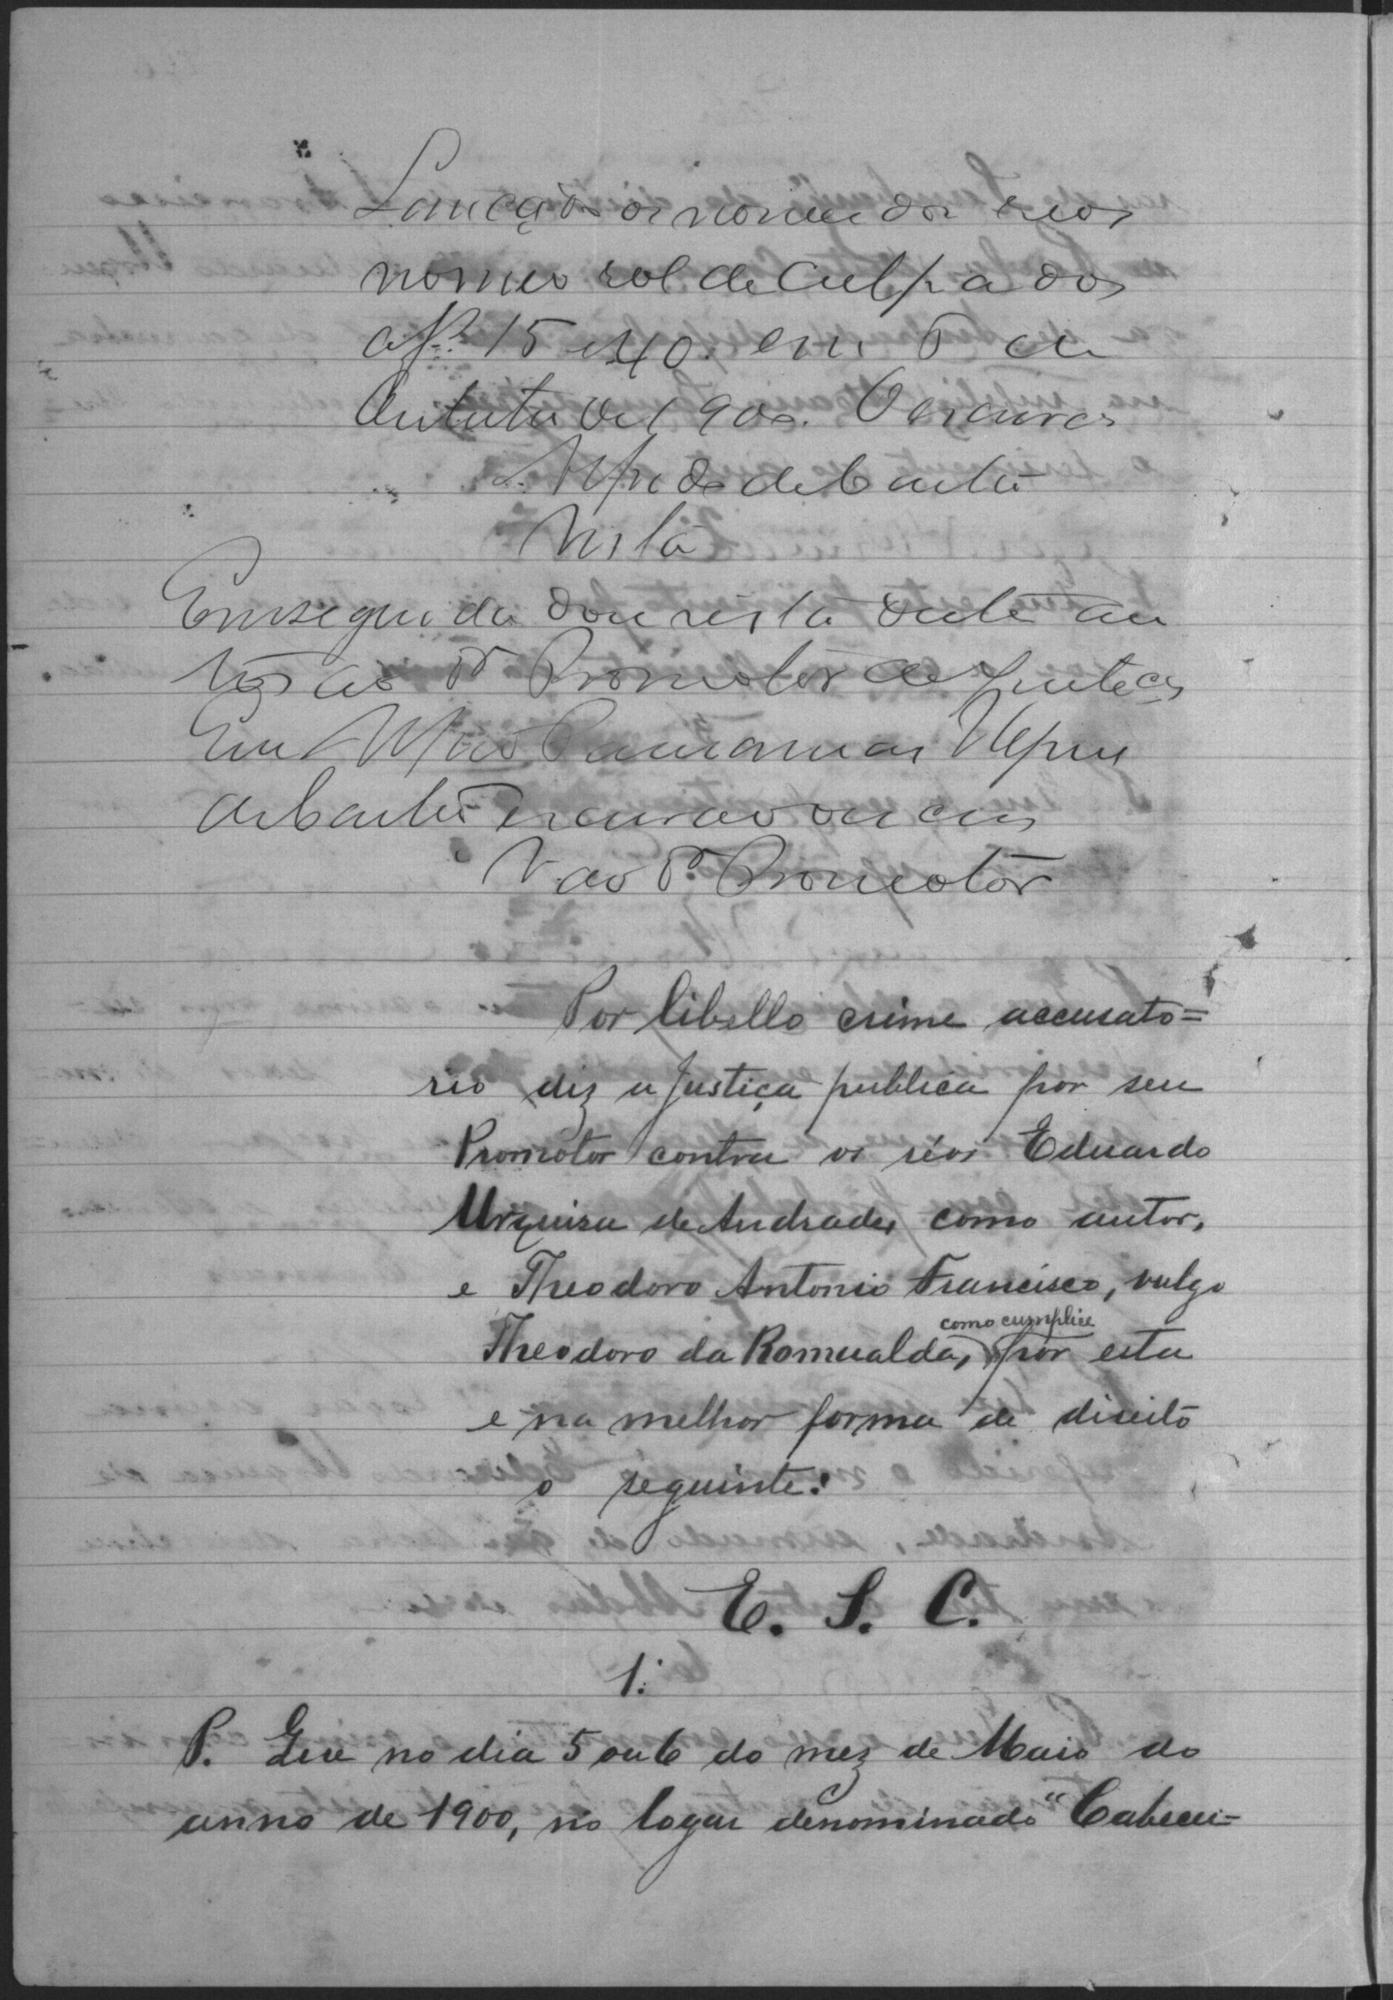 Lancei os nomes dos reos
no meu rol de culpados
a fs 15 e 40. em 5 de
de 1900. O escrivão
Alfredo de
Vista
Em seguida dou vista deste au
tos ao Dr Promotor de Justiça
Eu
escrivão
V. ao Dr. Promotor
Por libello crime accusato=
rio diz a Justiça publica por seu
Promotor contra os réos Eduardo
Urquisa de Andrade, como autor,
e Theodoro Antonio Francisco, vulgo
como cumplice
Theodoro da Romualda, por esta
e na melhor forma de direito
o seguinte:
E. S. C.
1.
P. Que no dia 5 ou 6 do mez de Maio do
anno de 1900, no logar denominado "Cabecei-